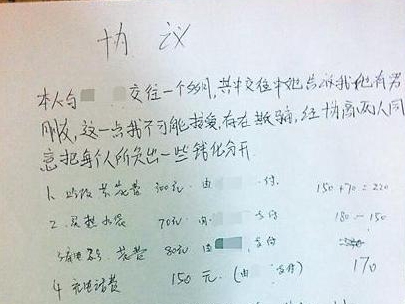 协议
本人与 交往一个多月,其中交往中她告诉我她有男
朋友,这一点我不可能接受,存在欺骗,经协商两人同
意把每个人所负出一些钱化分开.
1. 衣服 300元. 由 付. 150+70=220
2. 买 70元 由 支付 180-150
3. 费 80元 由 支付
4. 充电话费 150元. (由 支付) 170